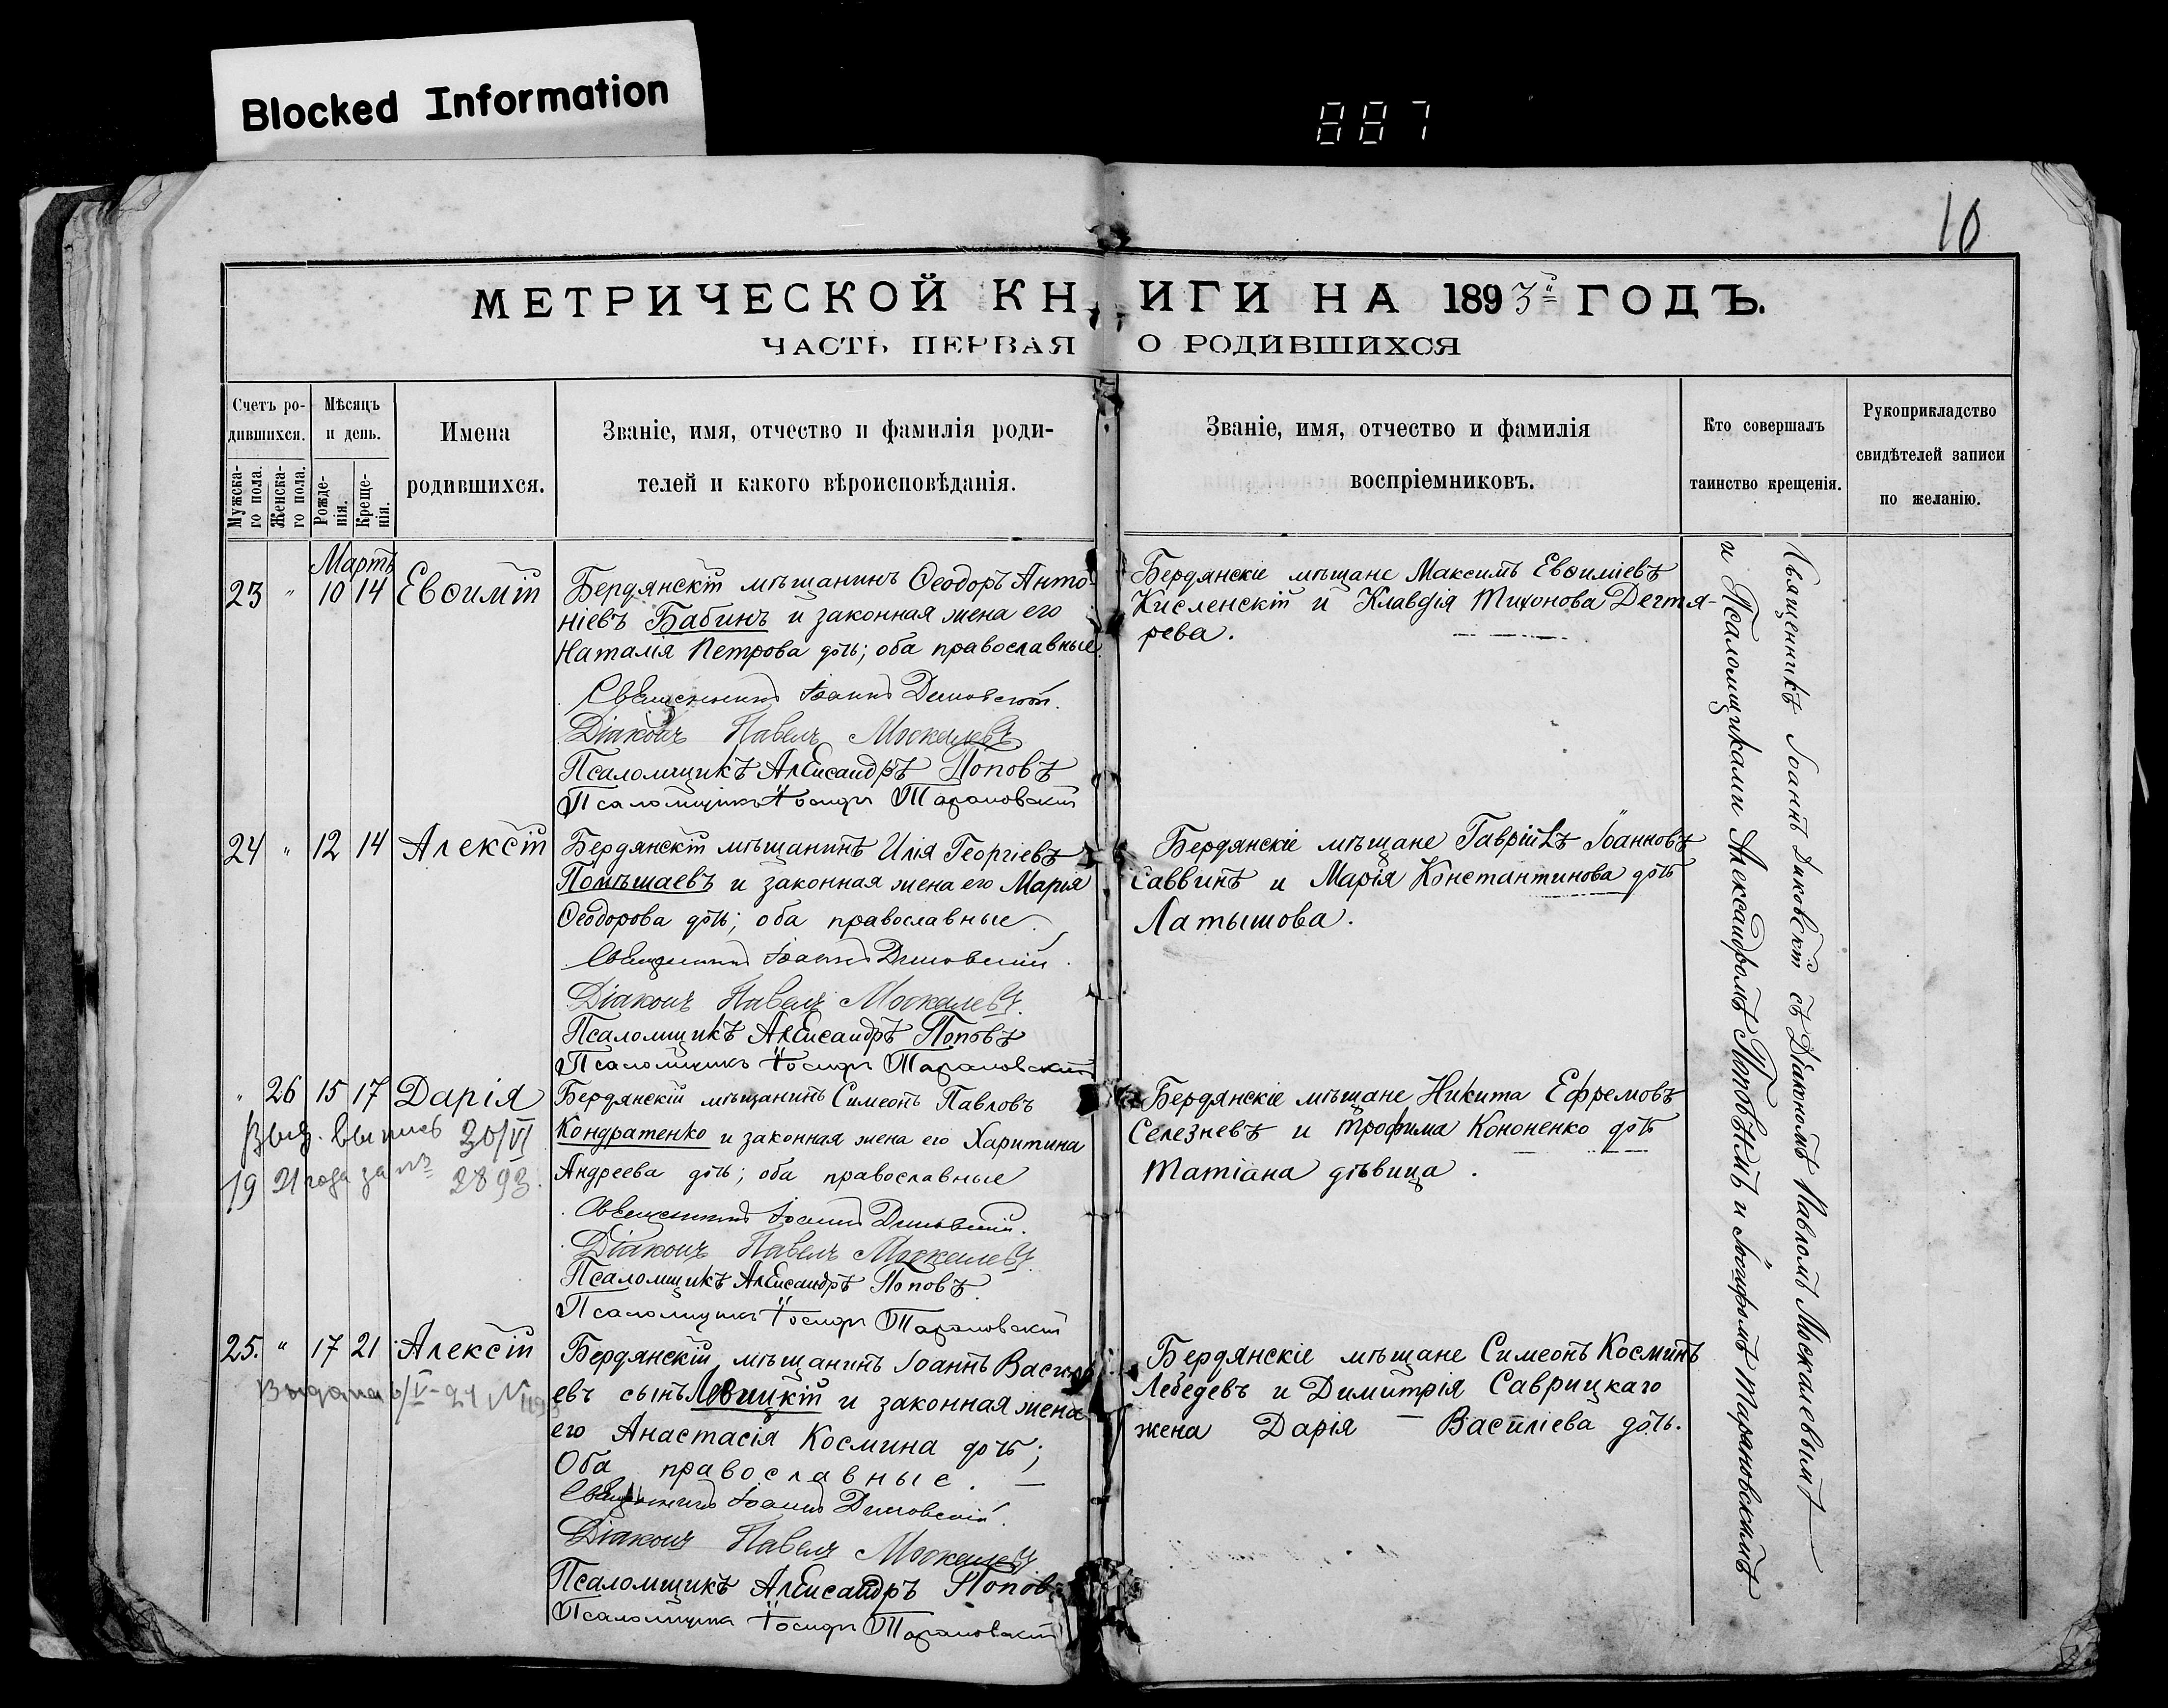 Blocked Information
887
10
МЕТРИЧЕСКОЙ КНИГИ НА 1893й ГОДЪ.
ЧАСТЬ ПЕРВАЯ О РОДИВШИХСЯ
Счетъ ро-
дившихся.
Мужска-
го пола.
Женска-
го пола.
Мѣсяцъ
и день.
Рожде-
нія.
Креще-
нія.
Имена
родившихся.
Званіе, имя, отчество и фамилія роди-
телей и какого вѣроисповѣданія.
Званіе, имя, отчество и фамилія
воспріемниковъ.
Кто совершалъ
таинство крещенія.
Рукоприкладство
свидѣтелей записи
по желанію.
Мартъ
23 " 10 14 Евѳимій
Бердянскій мѣщанинъ Ѳеодоръ Анто-
ніевъ Бабинъ и законная жена его
Наталія Петрова дочь; оба православные.
Священникъ Іоаннъ
Діаконъ Павелъ Москалевъ
Псаломщикъ Александръ Поповъ
Псаломщикъ Іосифъ Тарановскій
Бердянскіе мѣщане Максимъ Евѳиміевъ
Кисленскій и Клавдія Тихонова Дегтя-
рева.
24 " 12 14 Алексій
Бердянскій мѣщанинъ Илія Георгіевъ
Помѣшаевъ и законная жена его Марія
Ѳеодорова дочь; оба православные.
Священникъ Іоаннъ
Діаконъ Павелъ Москалевъ.
Псаломщикъ Александръ Поповъ
Псаломщикъ Іосифъ Тарановскій
Бердянскіе мѣщане Гавріилъ Іоанновъ
Саввинъ и Марія Константинова дочь
Латышова.
" 26 15 17 Дарія
Выд. выпись 30/VI
19 21 года за № 2893.
Бердянскій мѣщанинъ Симеонъ Павловъ
Кондратенко и законная жена его Харитина
Андреева дочь; оба православные
Священникъ Іоаннъ
Діаконъ Павелъ Москалевъ.
Псаломщикъ Александръ Поповъ.
Псаломщикъ Іосифъ Тарановскій
Бердянскіе мѣщане Никита Ефремовъ
Селезневъ и Трофима Кононенко дочь
Татіана дѣвица.
25. " 17 21 Алексій
Выдана
Бердянскій мѣщанинъ Іоаннъ Василі
евъ сынъ Левицкій и законная жена
его Анастасія Космина дочь;
Оба православные. —
Священникъ Іоаннъ
Діаконъ Павелъ Москалевъ
Псаломщикъ Александръ Поповъ
Псаломщикъ Іосифъ Тарановскій
Бердянскіе мѣщане Симеонъ Косминъ
Лебедевъ и Димитрія Саврицкаго
жена Дарія — Василіева дочь.
Священникъ Іоаннъ съ Діакономъ Павломъ Москалевымъ
и Псаломщиками Александромъ Поповымъ и Іосифомъ Тарановскимъ